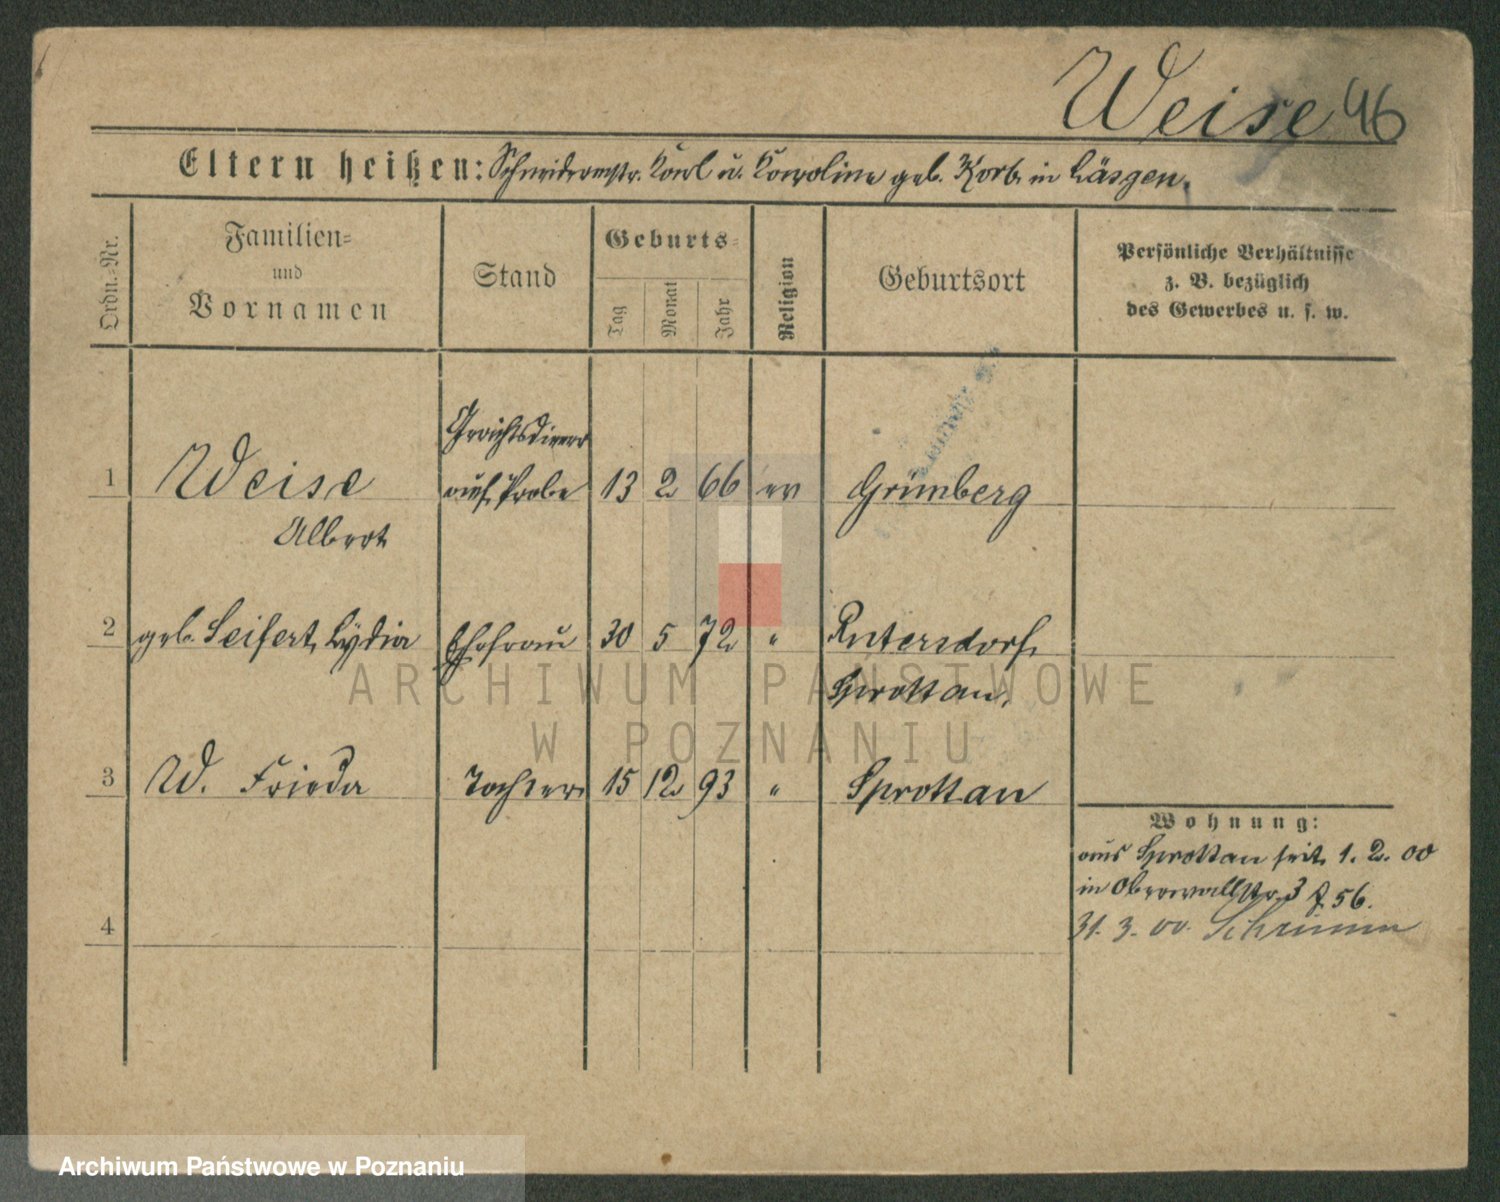 Weise 46
Eltern heißen: Schneidermstr. Karl u. Karoline geb. Korb. in Läsgen.
Ordn.-Nr.
Familien-
und
Vornamen
Stand
Geburts-
Tag
Monat
Jahr
Religion
Geburtsort
Persönliche Verhältnisse
z. B. bezüglich
des Gewerbes u. s. w.
Grichtsdiener
1 Weise auf Probe 13 2 66 ev Grünberg
Albert
2 geb. Seifert, Lydia Ehefrau 30 5 72 " Rutersdorf,
Sprottau.
3 W. Frieda Tochter 15 12 93 " Sprottau
Wohnung:
aus Sprottau seit 1. 2. 00
in Oberwallstr. 3 56.
31. 3. 00. Schrimm
4
ARCHIWUM PAŃSTWOWE
W POZNANIU
Archiwum Państwowe w Poznaniu